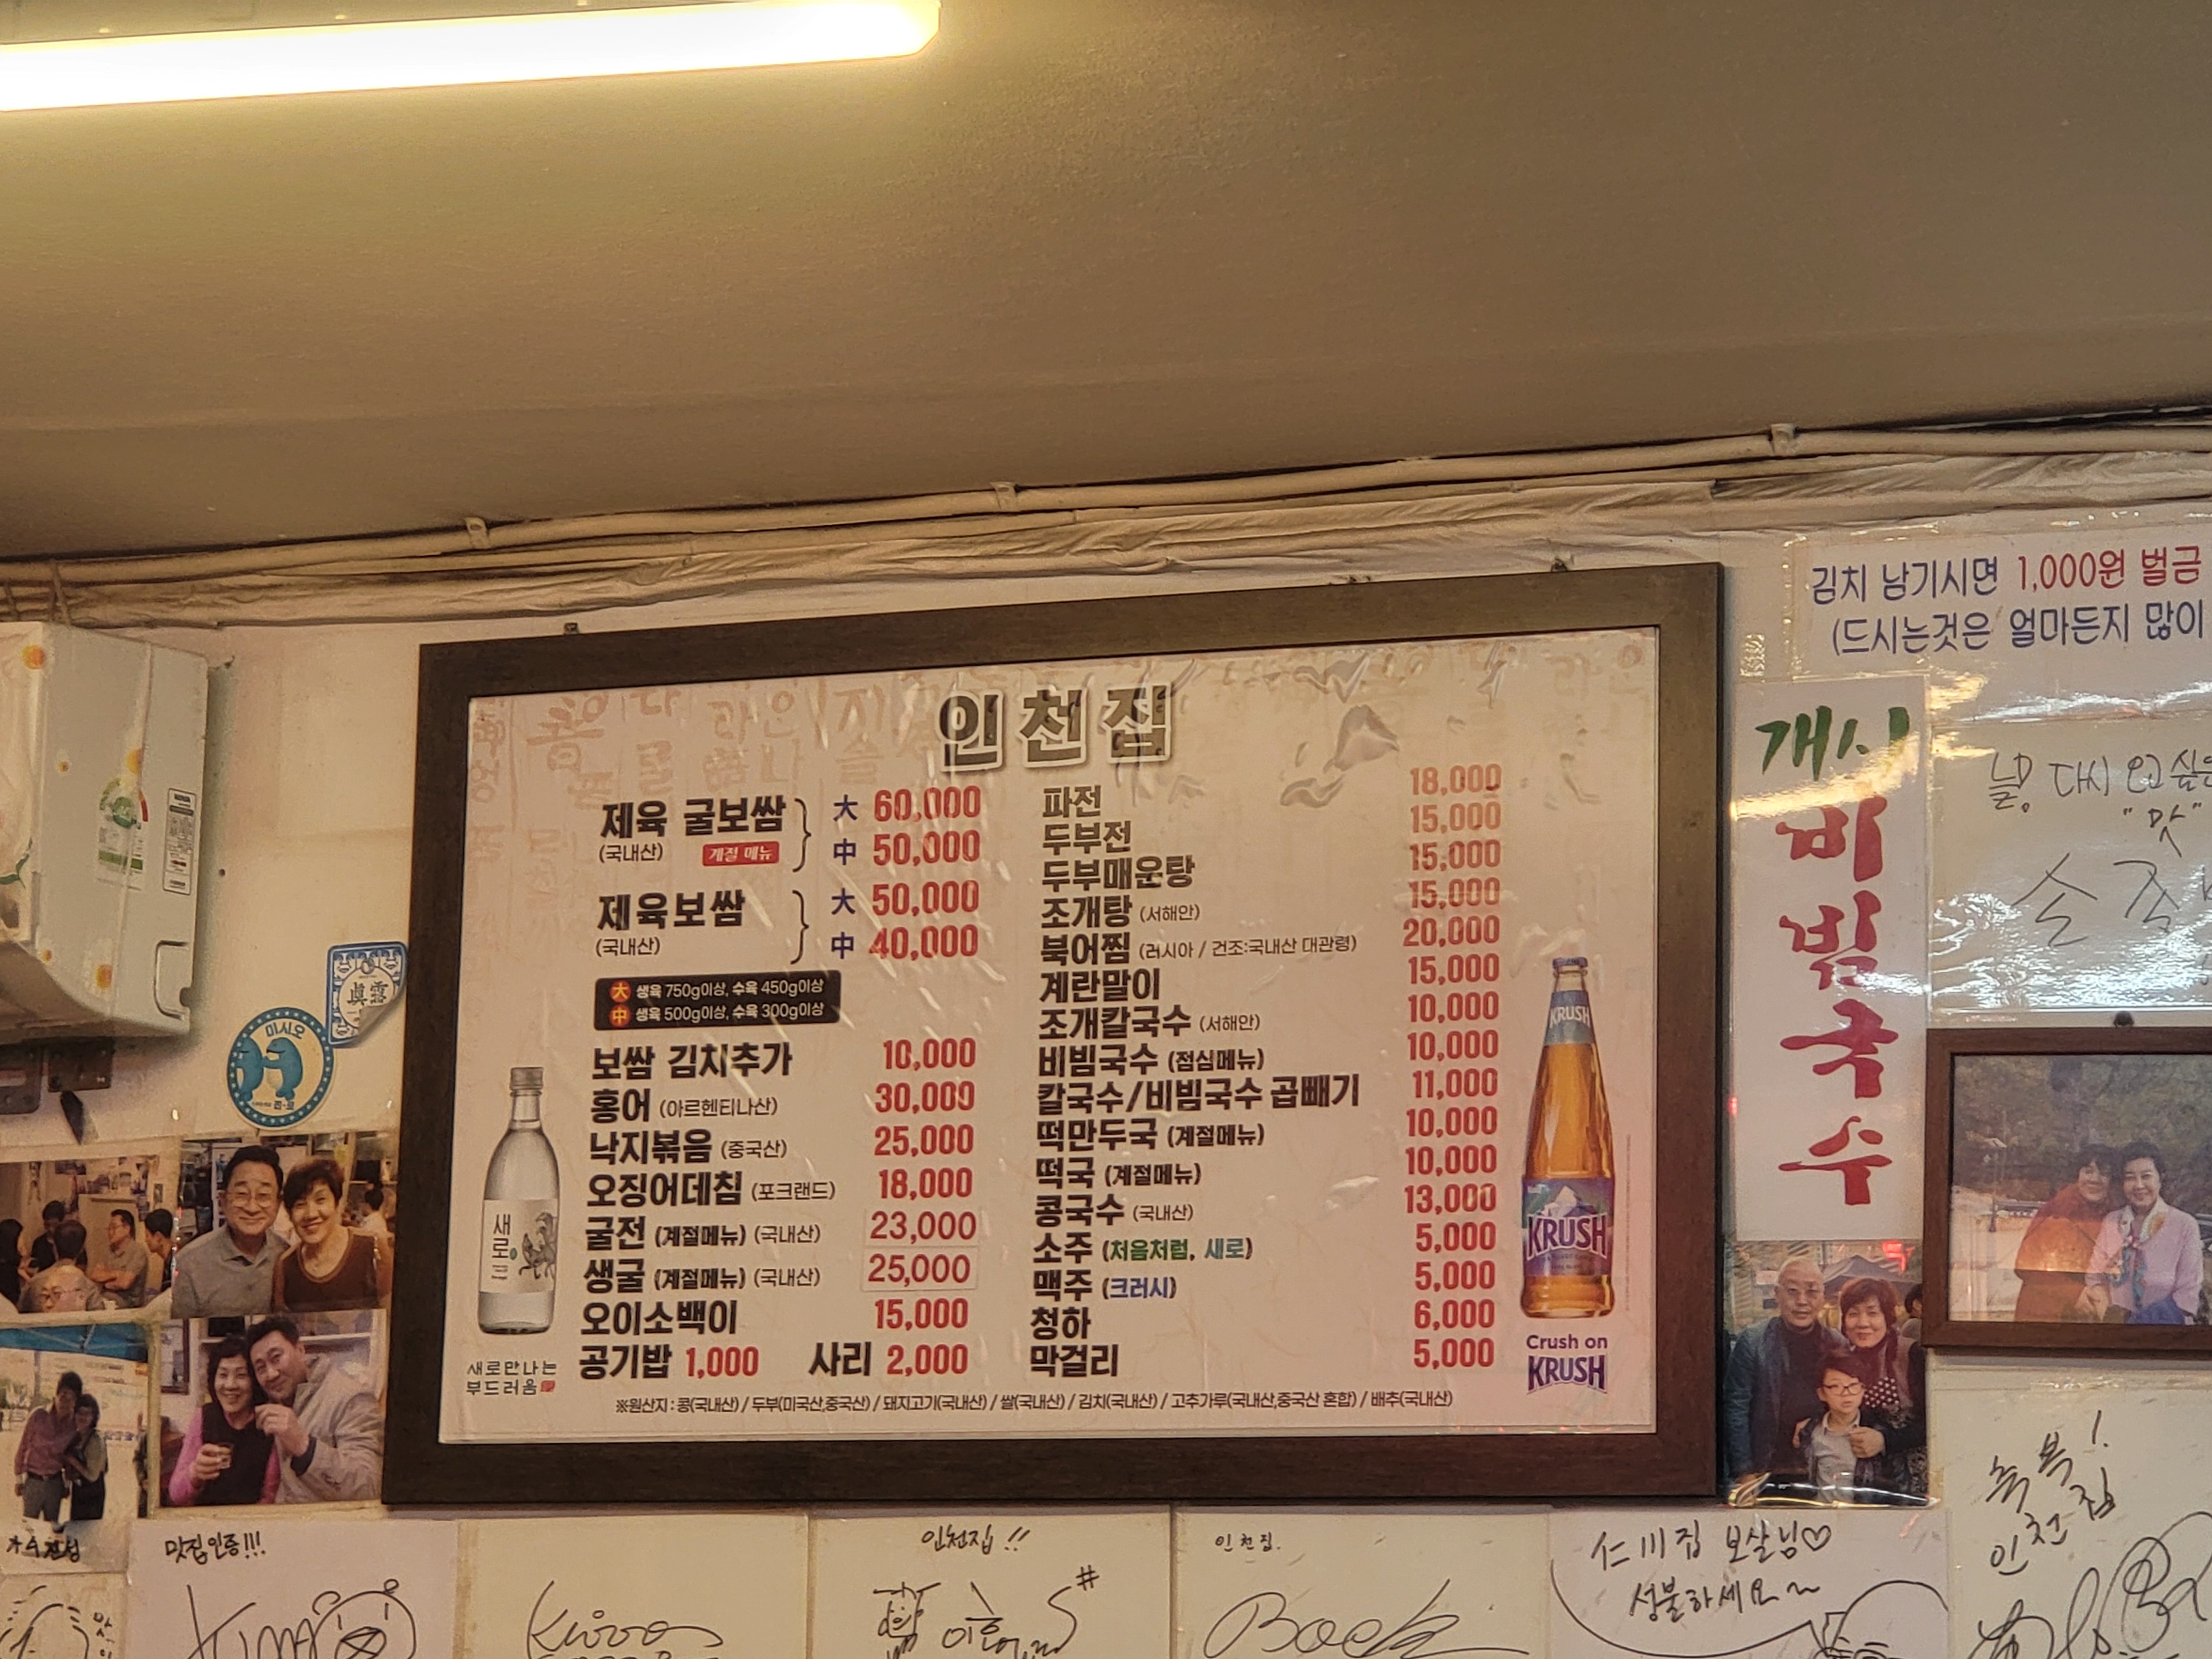 인천집
제육 굴보쌈 大 60,000
(국내산) 계절 메뉴 中 50,000
제육보쌈 大 50,000
(국내산) 中 40,000
大 생육 750g이상, 수육 450g이상
中 생육 500g이상, 수육 300g이상
보쌈 김치추가 10,000
홍어 (아르헨티나산) 30,000
낙지볶음 (중국산) 25,000
오징어데침 (포크랜드) 18,000
굴전 (계절메뉴) (국내산) 23,000
생굴 (계절메뉴) (국내산) 25,000
오이소백이 15,000
공기밥 1,000 사리 2,000
파전 18,000
두부전 15,000
두부매운탕 15,000
조개탕 (서해안) 15,000
북어찜 (러시아 / 건조:국내산 대관령) 20,000
계란말이 15,000
조개칼국수 (서해안) 10,000
비빔국수 (점심메뉴) 10,000
칼국수/비빔국수 곱빼기 11,000
떡만두국 (계절메뉴) 10,000
떡국 (계절메뉴) 10,000
콩국수 (국내산) 13,000
소주 (처음처럼, 새로) 5,000
맥주 (크러시) 5,000
청하 6,000
막걸리 5,000
※원산지 : 콩(국내산) / 두부(미국산,중국산) / 돼지고기(국내산) / 쌀(국내산) / 김치(국내산) / 고추가루(국내산,중국산 혼합) / 배추(국내산)
새로
새로만나는
부드러움
KRUSH
KRUSH
Crush on
KRUSH
김치 남기시면 1,000원 벌금
(드시는것은 얼마든지 많이
개시
비빔국수
늘 다시 오고 싶은
"맛"
미시오
眞露
맛집인증!!!
인천집!!
인천집.
仁川집 보살님♡
성불하세요~
축복!
인천집